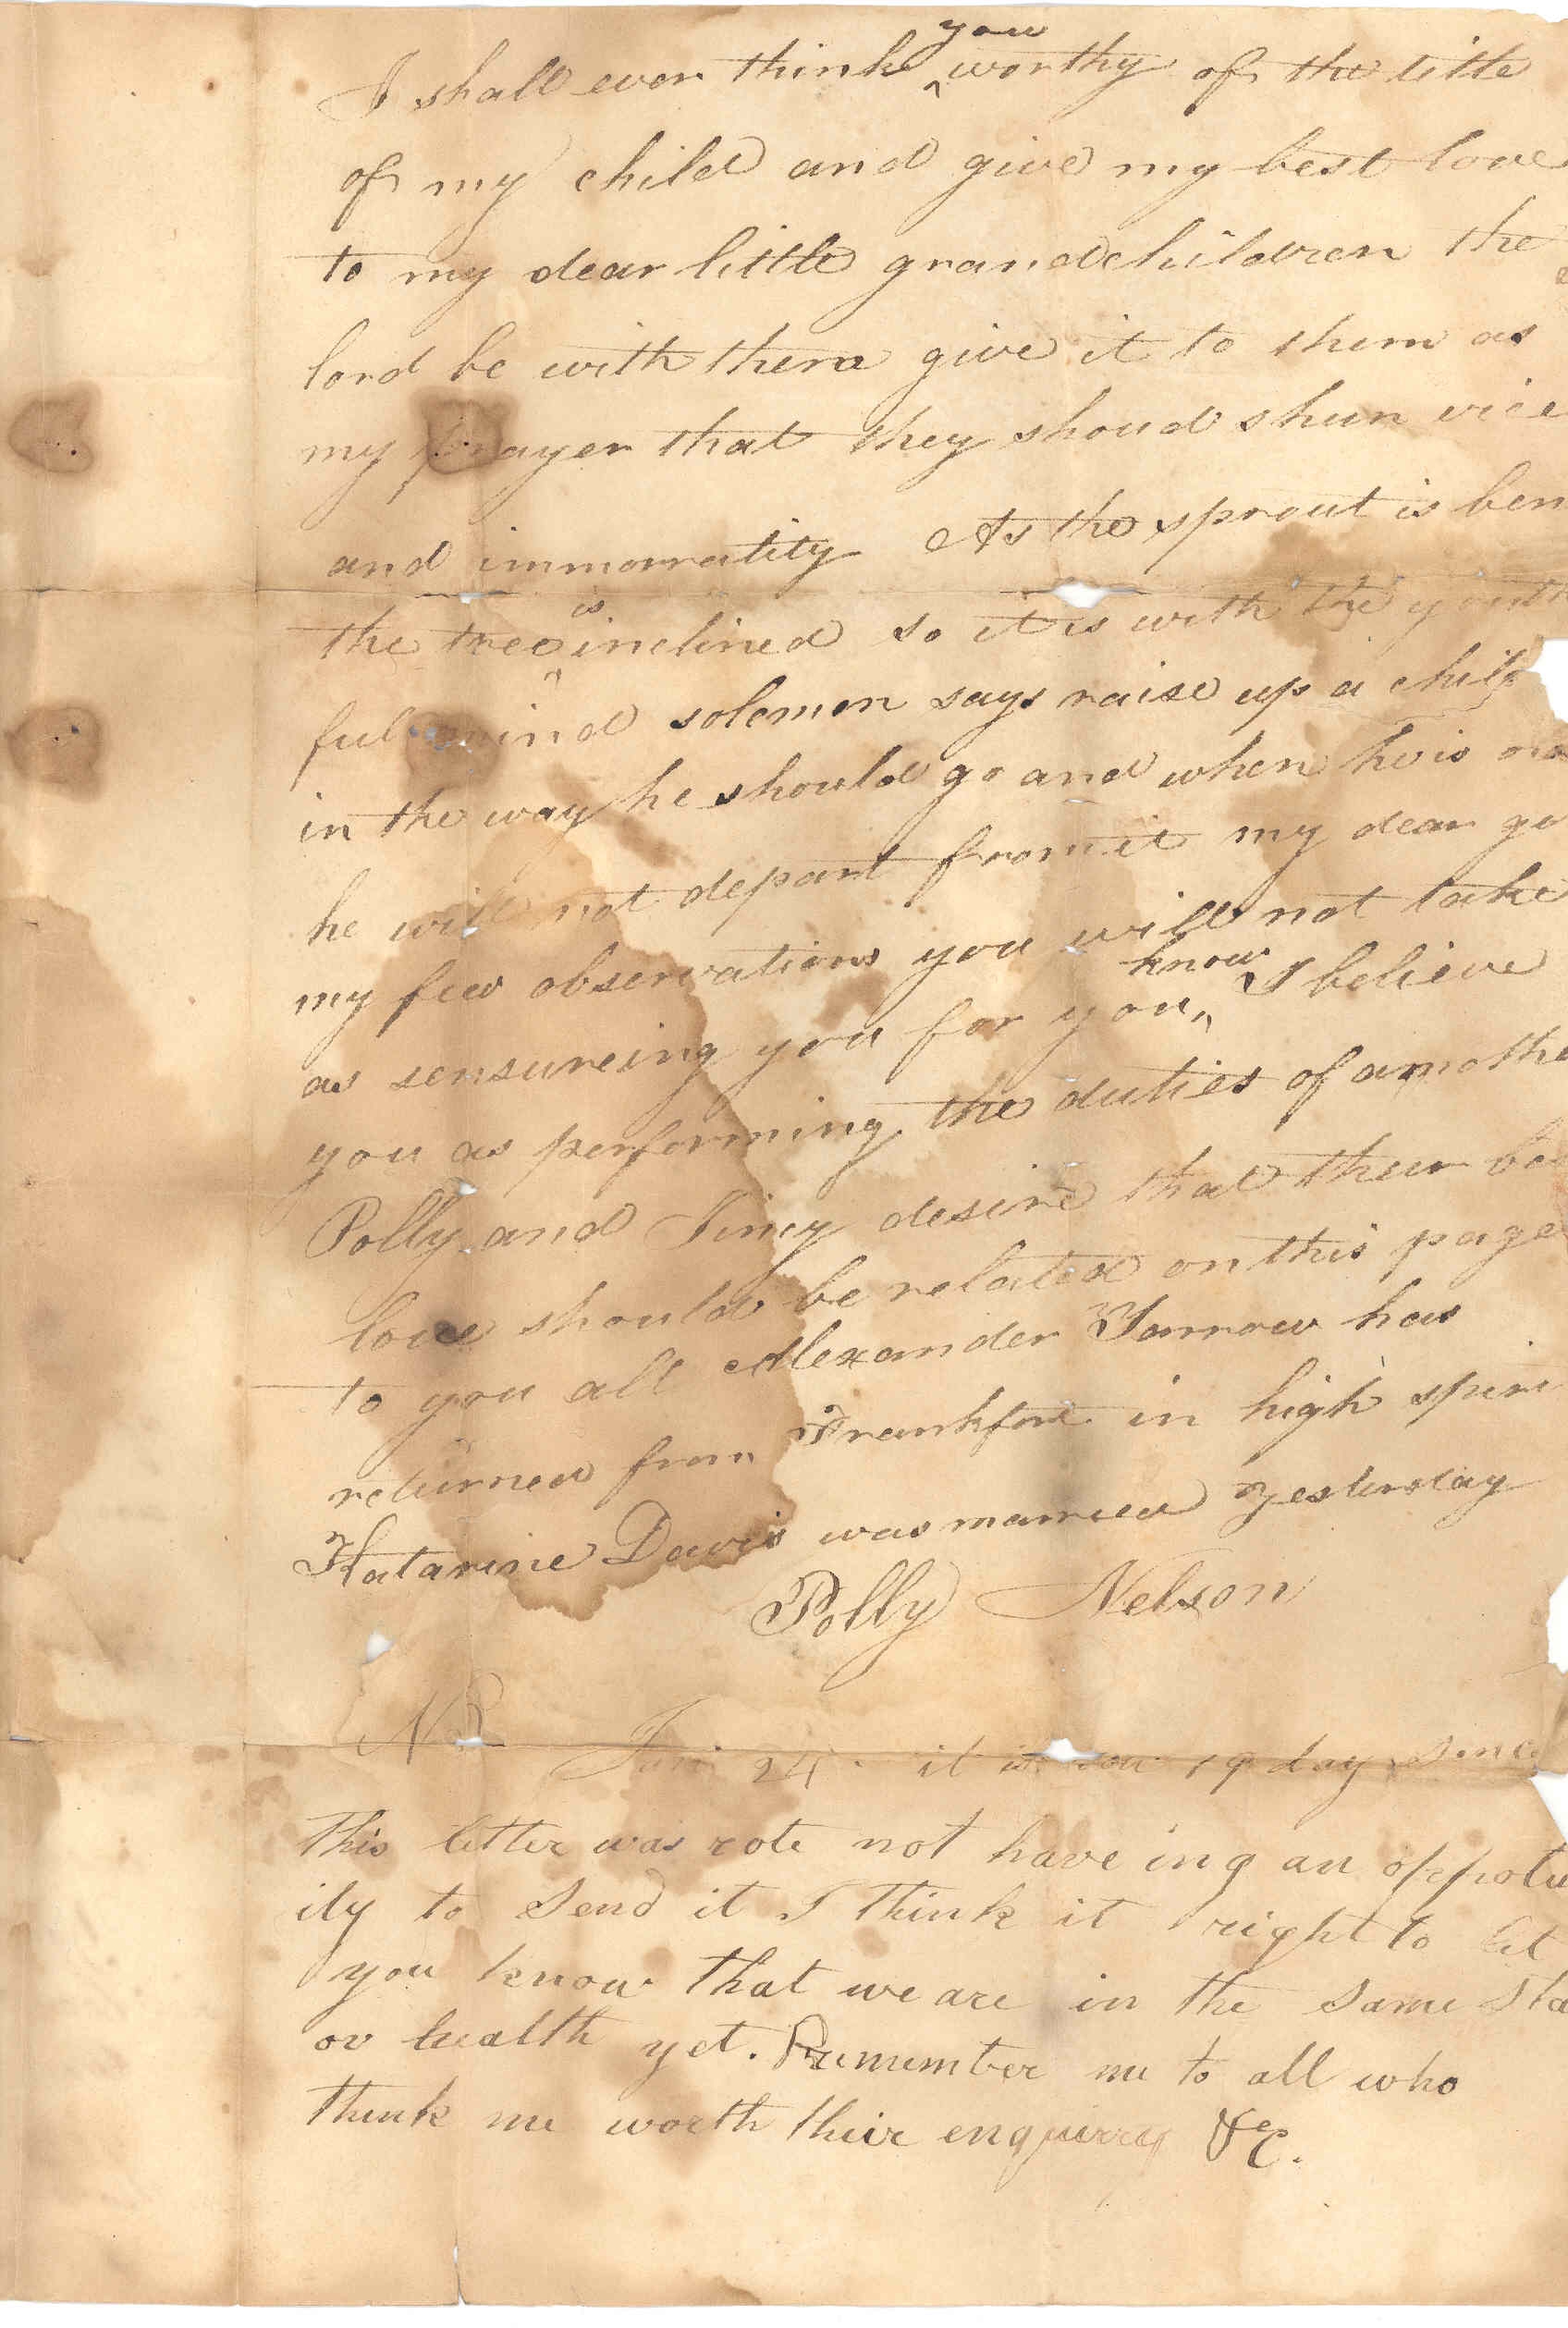 I shall ever think you worthy of the title
of my child and give my best love
to my dear little grandchildren the
lord be with them give it to them as
my prayer that they shoud shun vice
and immorratity As the sprout is ben
the tree is inclined so it is with the youth
ful mind solemon says raise up a child
in the way he should go and when he is
he will not depart from it my dear
my few observations you will not take
as sensureing you for you know I believe
you as performing the duties of a mothe
Polly and Jincy desire that their
love should be related on this page
to you all Alexander Yarrow has
returned from Frankfort in high spiri
Katarine Davis was married yesterday
Polly Nelson
NB
24. it is 19 day since
this letter was rote not have ing an oppotu
ity to send it I think it right to let
you know that we are in the same sta
ov health yet. Remember me to all who
think me worth their enquirry &c.